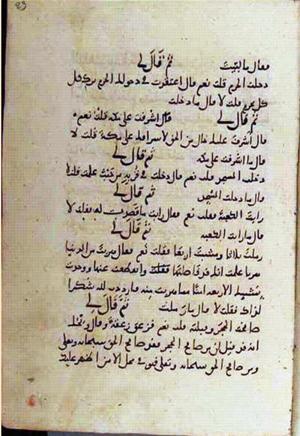 فقال ما لبيت ثم قال لي
دخلت الحرم قلت نعم قال اعتقدت في دخولك الحرم ترك كل
محرم قلت لا قال ما دخلت
ثم قال لي اشرفت على مكة قلت نعم
قال اشرف عليك حال من الحق لاشرافك على مكة قلت لا
قال ما اشرفت على مكة ثم قال لي
دخلت المسجد قلت نعم قال دخلت في قربه من حيث علمت قلت لا
قال ما دخلت المسجد ثم قال لي
رايت الكعبة فقلت نعم فقال رايت ما قصدت له فقلت لا
قال ما رايت الكعبة ثم قال لي
رملت ثلاثا ومشيت اربعا فقلت نعم فقال هربت من الدنيا
هربا علمت انك قد فاصلتها وانقطعت عنها ووجدت
بمشيك الاربعة امنا مما هربت منه فازددت لله شكرا
لذلك فقلت لا قال ما رملت ثم قال لي
صافحت الحجر وقبلته قلت نعم فزعق زعقة وقال ويحك
انه قد قيل ان من صافح الحجر فقد صافح الحق سبحانه وتعالى
ومن صافح الحق سبحانه وتعالى فهو في محل الامن اظهر عليك